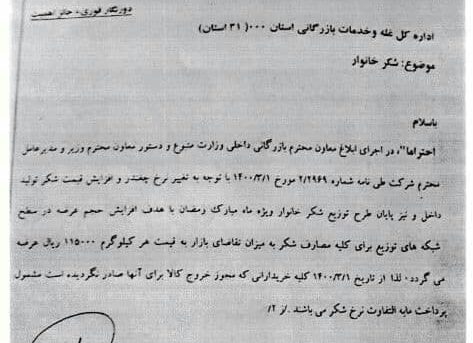 دورنگار فوری - حائز اهمیت
اداره کل غله وخدمات بازرگانی استان ۰۰۰( ۳۱ استان)
موضوع: شکر خانوار
باسلام
احتراما"، در اجرای ابلاغ معاون محترم بازرگانی داخلی وزارت متبوع و دستور معاون محترم وزیر و مدیرعامل
محترم شرکت طی نامه شماره ۲/۲۹۶۹ مورخ ۱۴۰۰/۳/۱ با توجه به تغییر نرخ چغندر و افزایش قیمت شکر تولید
داخل و نیز پایان طرح توزیع شکر خانوار ویژه ماه مبارک رمضان با هدف افزایش حجم عرضه در سطح
شبکه های توزیع برای کلیه مصارف شکر به میزان تقاضای بازار به قیمت هر کیلوگرم ۱۱۵۰۰۰ ریال عرضه
می گردد۰ لذا از تاریخ ۱۴۰۰/۳/۱ کلیه خریدارانی که مجوز خروج کالا برای آنها صادر نگردیده است مشمول
پرداخت مابه التفاوت نرخ شکر می باشند .ز ۲/